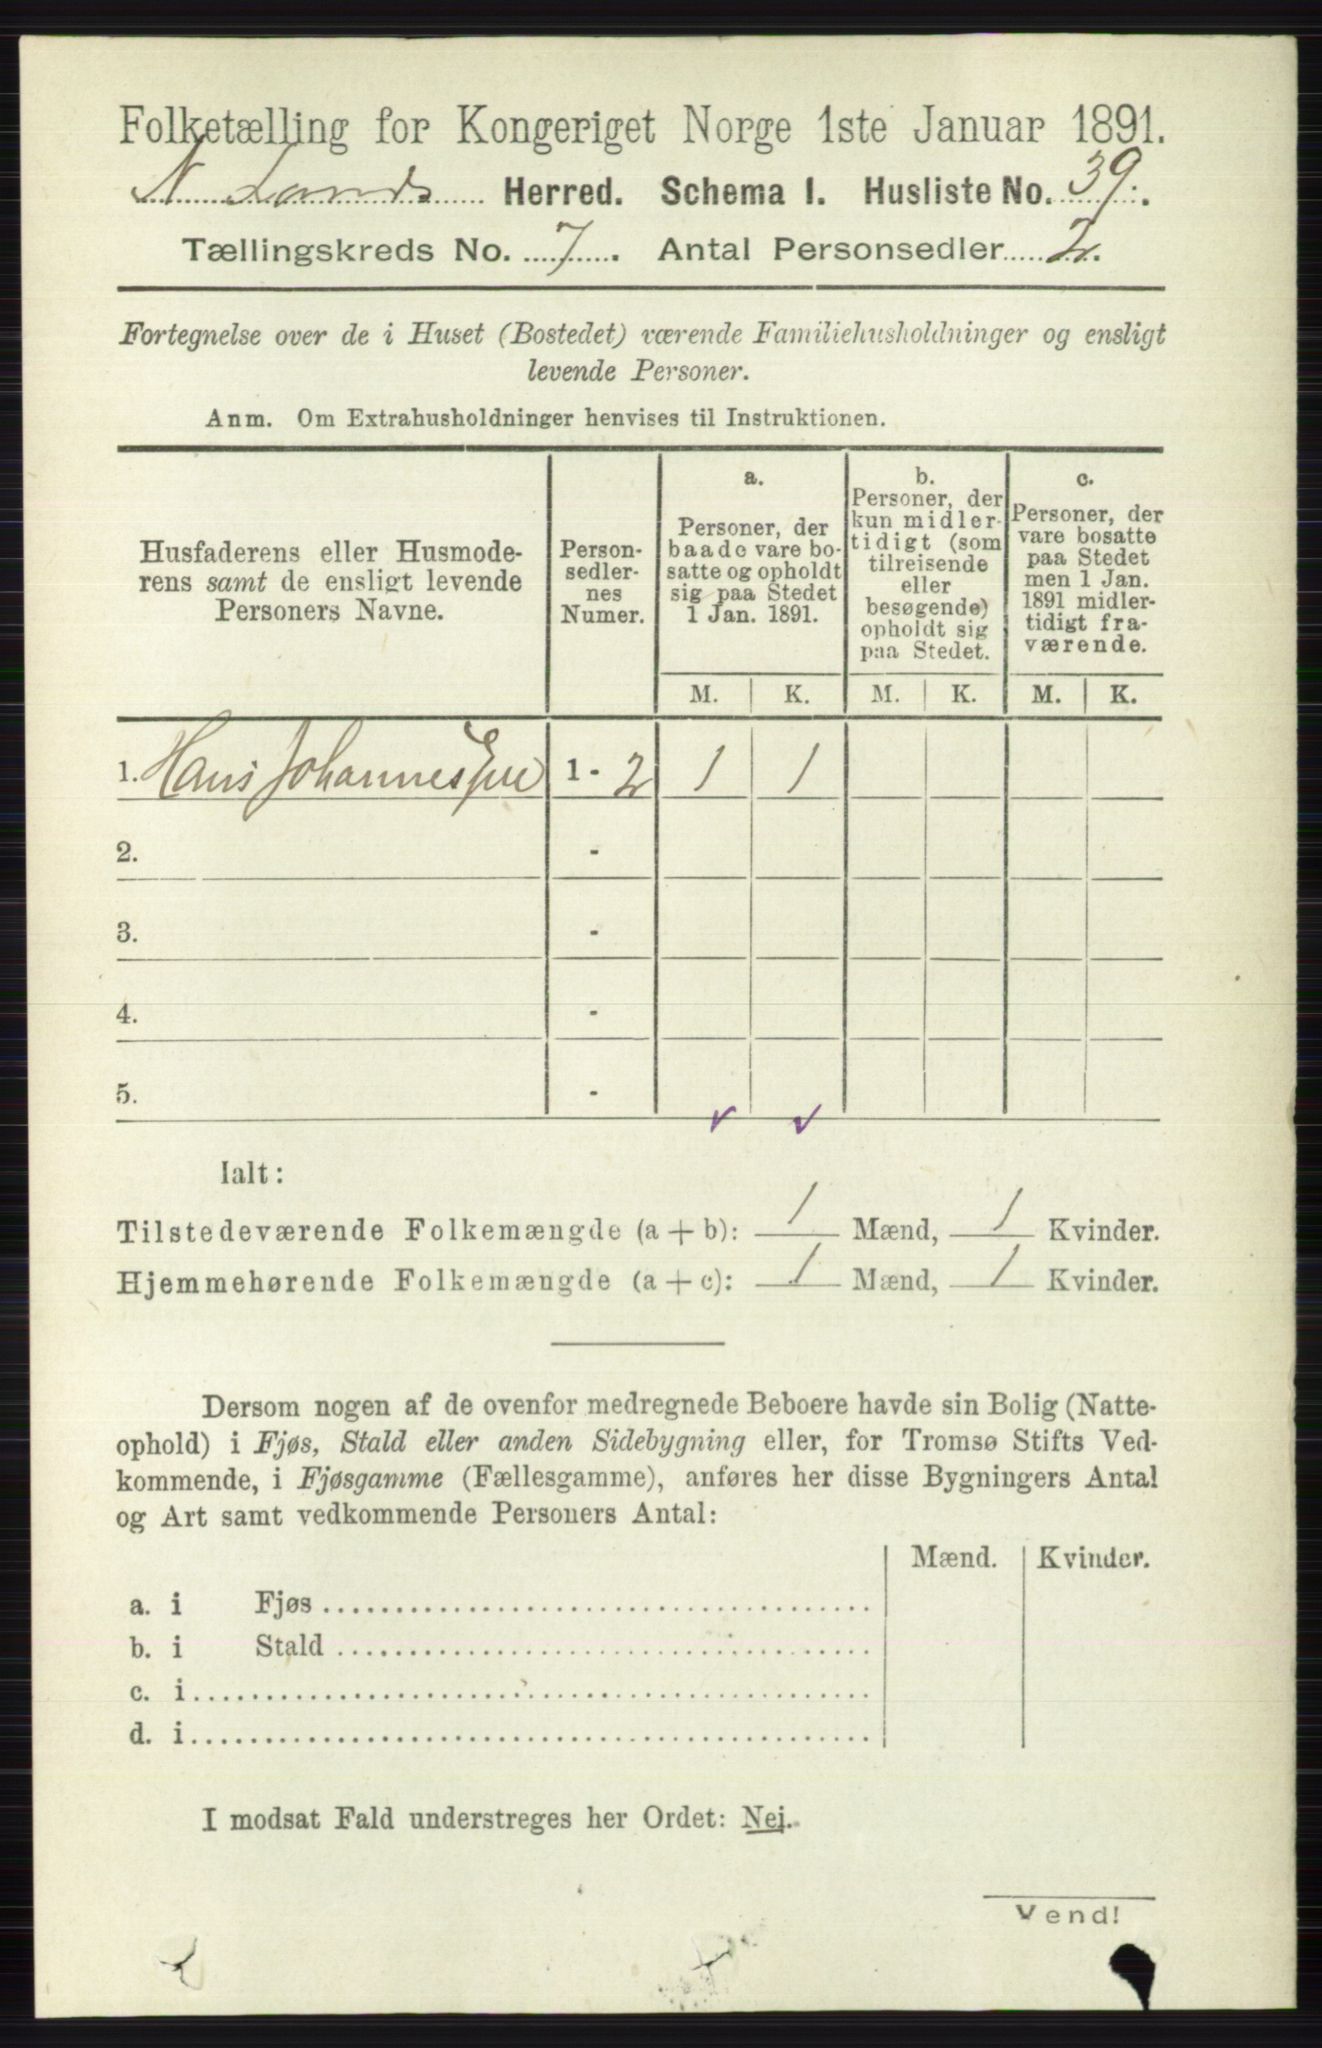 Folketælling for Kongeriget Norge 1ste Januar 1891.
N Lands Herred. Schema I. Husliste No. 39.
Tællingskreds No. 7. Antal Personsedler 2.
Fortegnelse over de i Huset (Bostedet) værende Familiehusholdninger og ensligt
levende Personer.
Anm. Om Extrahusholdninger henvises til Instruktionen.
Husfaderens eller Husmode-
rens samt de ensligt levende
Personers Navne.
Person-
sedler-
nes
Numer.
a.
Personer, der
baade vare bo-
satte og opholdt
sig paa Stedet
1 Jan. 1891.
b.
Personer, der
kun midler-
tidigt (som
tilreisende
eller
besøgende)
opholdt sig
paa Stedet.
c.
Personer, der
vare bosatte
paa Stedet
men 1 Jan.
1891 midler-
tidigt fra-
værende.
M. K. M. K. M. K.
1. Hans Johannes 1 - 2 1 1
2. -
3. -
4. -
5. -
Ialt:
Tilstedeværende Folkemængde (a + b): 1 Mænd, 1 Kvinder.
Hjemmehørende Folkemængde (a + c): 1 Mænd, 1 Kvinder.
Dersom nogen af de ovenfor medregnede Beboere havde sin Bolig (Natte-
ophold) i Fjøs, Stald eller anden Sidebygning eller, for Tromsø Stifts Ved-
kommende, i Fjøsgamme (Fællesgamme), anføres her disse Bygningers Antal
og Art samt vedkommende Personers Antal:
Mænd. Kvinder.
a. i Fjøs
b. i Stald
c. i
d. i
I modsat Fald understreges her Ordet: Nei.
Vend!